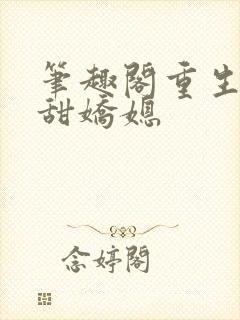 筆趣閣重生
甜嬌媳
念婷閣